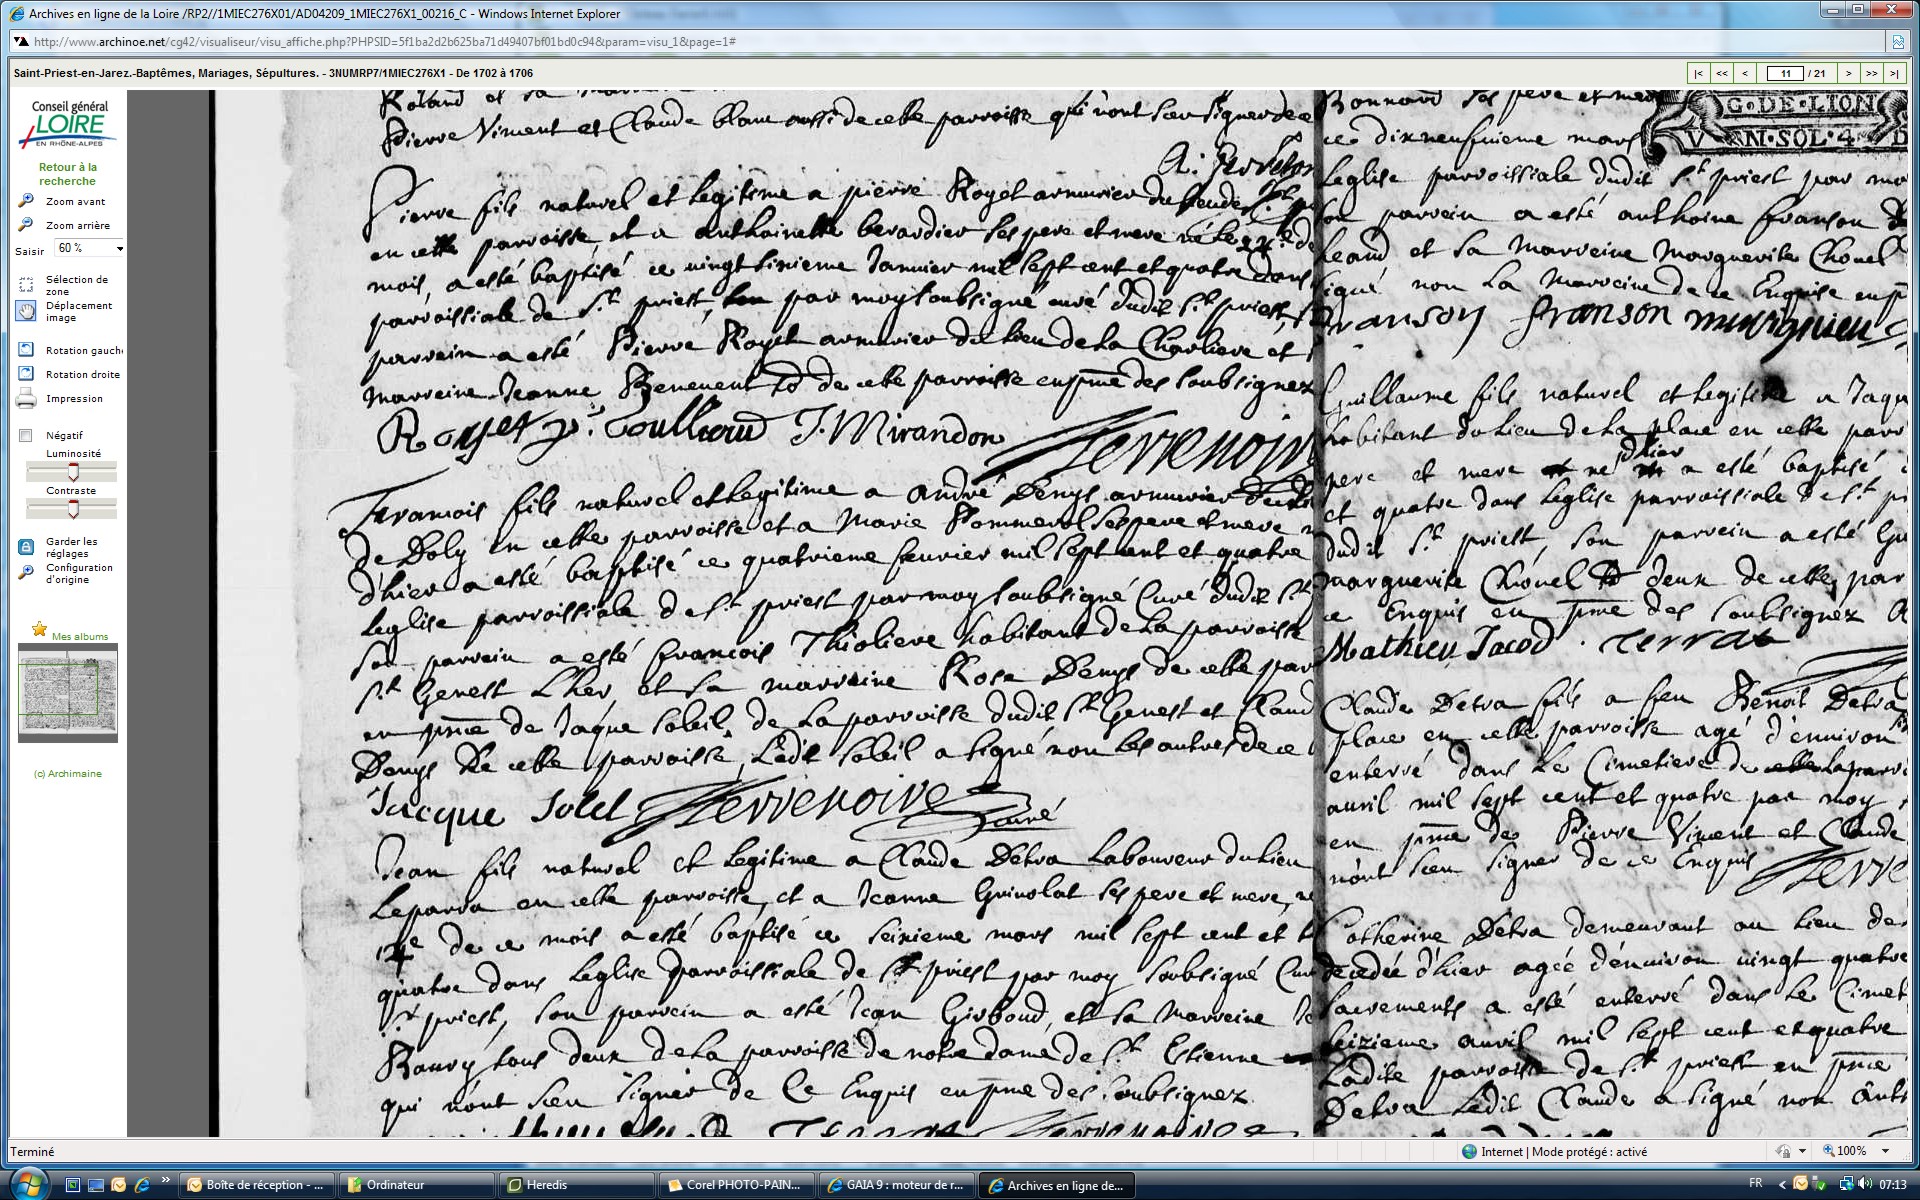 Archives en ligne de la Loire /RP2//1MIEC276X01/AD04209_1MIEC276X1_00216_C - Windows Internet Explorer
http://www.archinoe.net/cg42/visualiseur/visu_affiche.php?PHPSID=5f1ba2d2b625ba71d49407bf01bd0c94&param=visu_1&page=1#
Saint-Priest-en-Jarez.-Baptêmes, Mariages, Sépultures. - 3NUMRP7/1MIEC276X1 - De 1702 à 1706
|< << < 11 / 21 > >> >|
Conseil général
LOIRE
EN RHÔNE-ALPES
Retour à la
recherche
Zoom avant
Zoom arrière
Saisir 60 %
Sélection de
zone
Déplacement
image
Rotation gauch
Rotation droite
Impression
Négatif
Luminosité
Contraste
Garder les
réglages
Configuration
d'origine
Mes albums
(c) Archimaine
Pierre Viment et Claude blanc aussi de cette parroisse qui n'ont sceu signer de ce
Pierre fils naturel et legitime a pierre Royet armurier du
en cette parroisse, et a anthoinette berardier ses pere et mere né le de
mois, a esté baptisé ce vingt sixieme Janvier mil sept cent et quatre dans
parroissiale de St priest, par moy soubsigné curé dudit St priest,
parrein a esté Pierre Royet armurier du lieu de la Charliere et
marreine Jeanne Benevent de cette parroisse en pnce des soubsignez
Royet J. Mirandon Terrenoire
Francois fils naturel et legitime a André Denys armurier du
de Doly en cette parroisse et a Marie Pommerol ses pere et mere
d'hier a esté baptisé ce quatrieme feuvrier mil sept cent et quatre
Leglise parroissiale de St priest par moy soubsigné Curé dudit St
son parrein a esté françois Thioliere habitant de la parroisse
St Genest L'her et sa marreine Rosa Denys de cette par
en pnce de Jaque Soleil de la parroisse dudit St Genest et Claud
Denys de cette parroisse, Ledit Soleil a signé non les autres de ce
Jacque Solel Terrenoire curé
Jean fils naturel et legitime a Claude Detra Laboureur du lieu
Leparra en cette parroisse, et a Jeanne Grivolat ses pere et mere, ne
14e de ce mois a esté baptisé ce seizieme mars mil sept cent et
quatre dans Leglise parroissiale de St priest par moy soubsigné Cur
St priest, son parrein a esté Jean Girboud, et sa Marreine
Ranvy tous deux de la parroisse de notre dame de St Estienne
qui n'ont sceu signer de ce Enquis en pnce des soubsignez
G·DE·LION
SOL·4·D
ce dixneufvieme mars
Leglise parroissiale dudit St priest par mo
son parrein a esté anthoine franson
et sa marreine Marguerite Chovel
signé non La Marreine de ce Enquise en p
franson franson
Guillaume fils naturel et legitime a Jaqu
habitant du Lieu de La place en cette parr
pere et mere né d'hier a esté baptisé
et quatre dans Leglise parroissiale de St pr
dudit St priest, son parrein a esté Gu
marguerite Chovel deux de cette par
ce Enquis en pnce des soubsignez
Mathieu Jacod. Terrat
Claude Detra fils a feu Benoit Detra
place en cette parroisse agé d'environ
enterré dans Le Cimetiere de
avril mil sept cent et quatre par moy
en pnce de Pierre Viment et Claude
n'ont sceu signer de ce Enquis Terre
Catherine Detra demeurant au lieu de
decedée d'hier agée d'environ vingt quatre
sacrements a esté enterré dans Le Cimet
seizieme avril mil sept cent et quatre
Ladite parroisse de St priest en pnce
Detra Ledit Claude a signé non
Terminé
Internet | Mode protégé : activé
100%
Boîte de réception - ...
Ordinateur
Heredis
Corel PHOTO-PAIN...
GAIA 9 : moteur de r...
Archives en ligne de...
FR
07:13